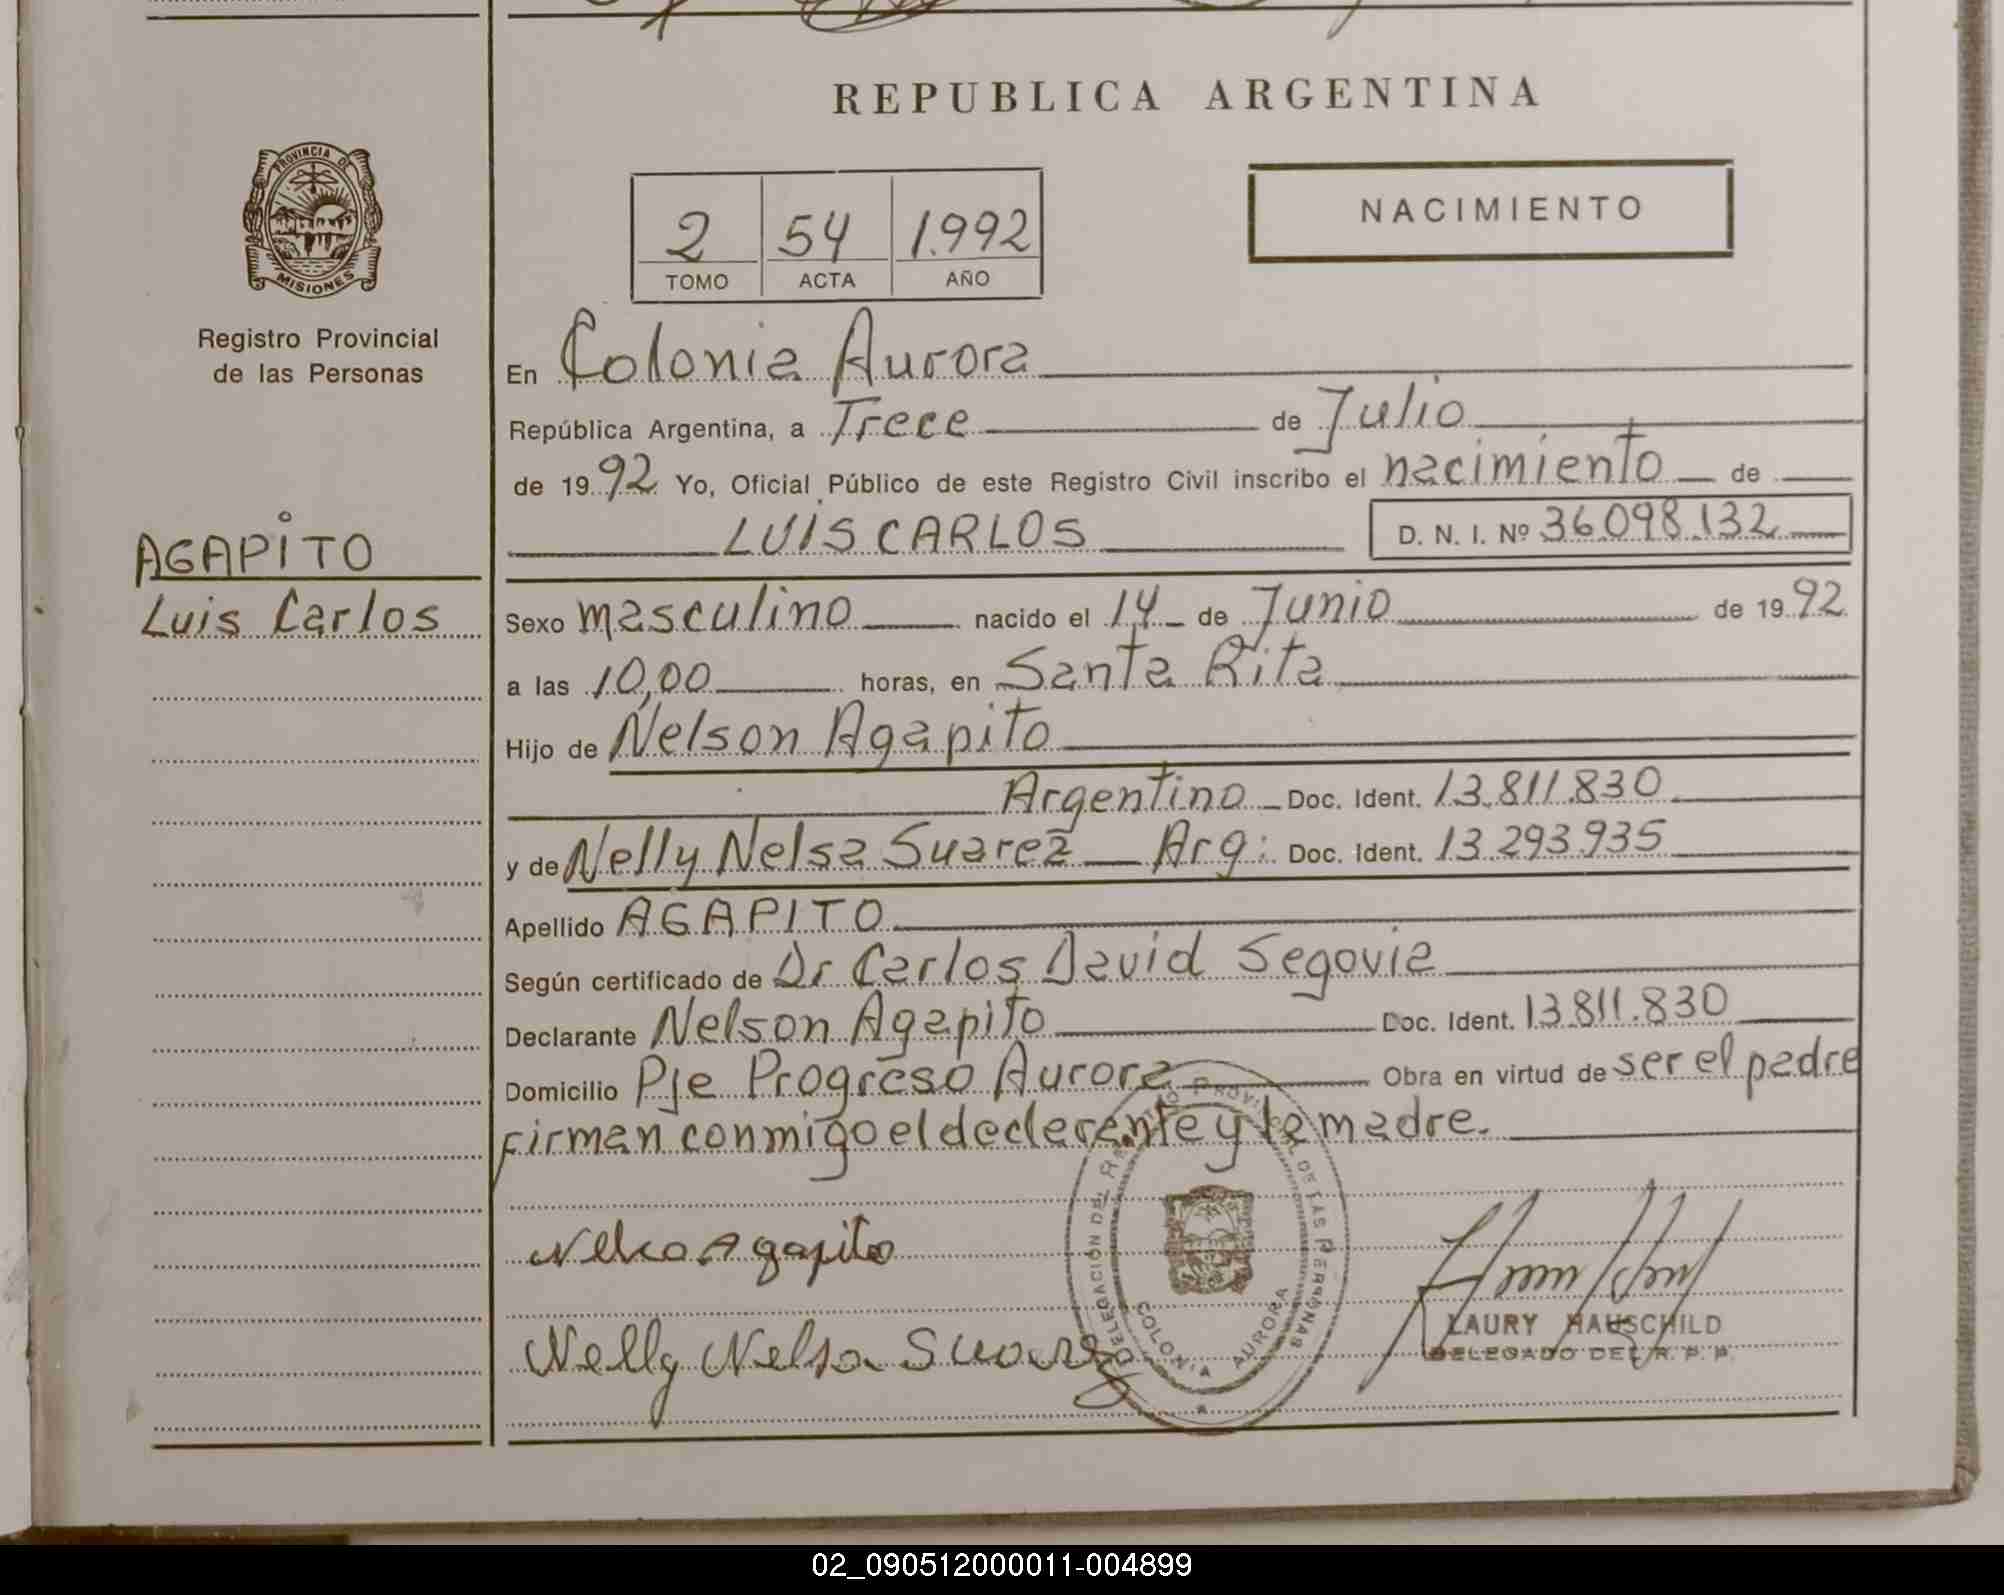 REPUBLICA ARGENTINA
PROVINCIA DE
MISIONES
Registro Provincial
de las Personas
2 54 1.992
TOMO ACTA AÑO
NACIMIENTO
En Colonia Aurora
República Argentina, a Trece de Julio
de 1992 Yo, Oficial Público de este Registro Civil inscribo el nacimiento de
LUIS CARLOS D. N. I. Nº 36.098.132
AGAPITO
Luis Carlos
Sexo masculino nacido el 14 de Junio de 1992
a las 10,00 horas, en Santa Rita
Hijo de Nelson Agapito
Argentino Doc. Ident. 13.811.830
y de Nelly Nelsa Suarez Arg: Doc. Ident. 13.293.935
Apellido AGAPITO
Según certificado de Dr Carlos David Segovia
Declarante Nelson Agapito Doc. Ident. 13.811.830
Domicilio Pje Progreso Aurora Obra en virtud de ser el padre
firman conmigo el declarente y la madre.
DELEGACIÓN DEL REGISTRO PROVINCIAL DE LAS PERSONAS
COLONIA AURORA
Agapito
Nelly Nelsa Suarez
LAURY HAUSCHILD
DELEGADO DEL R. P. P.
02_090512000011-004899